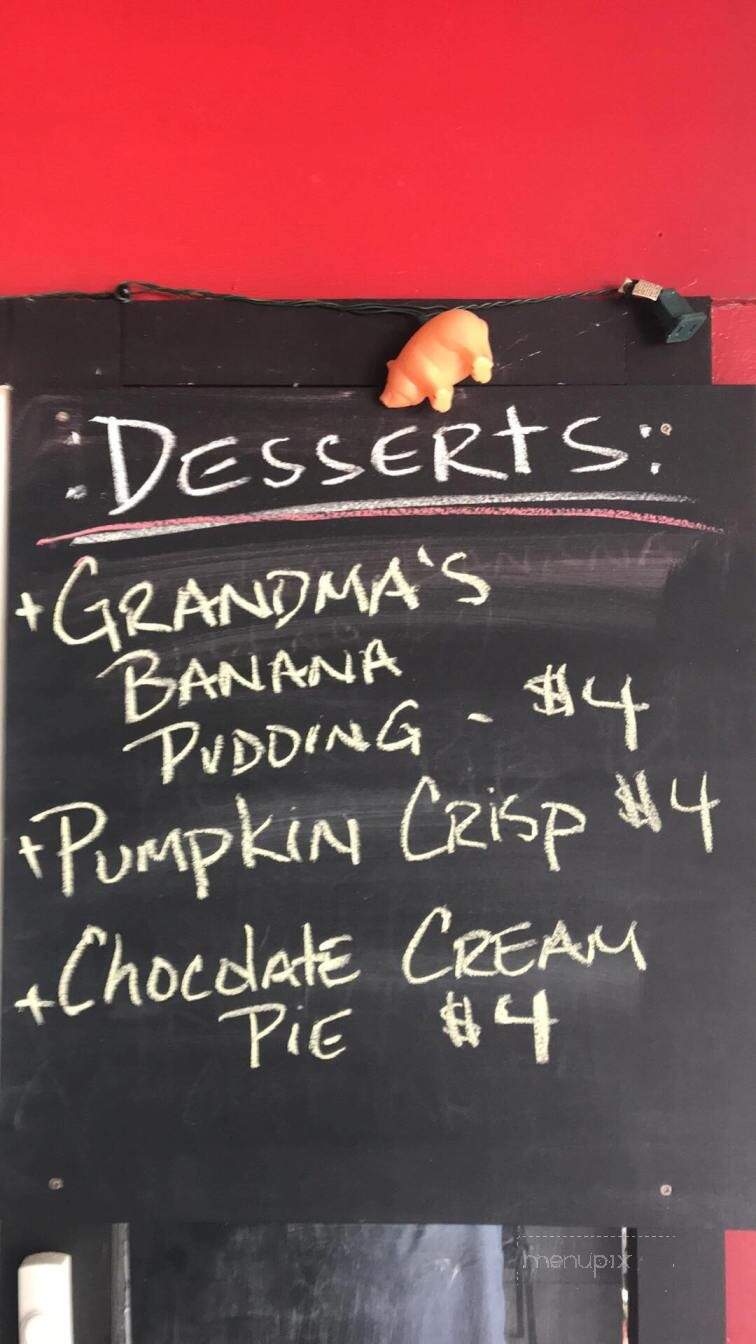 :DESSERTS:
+GRANDMA'S
BANANA
PUDDING - $4
+PUMPKIN CRISP $4
+CHOCOLATE CREAM
PIE $4
menupix